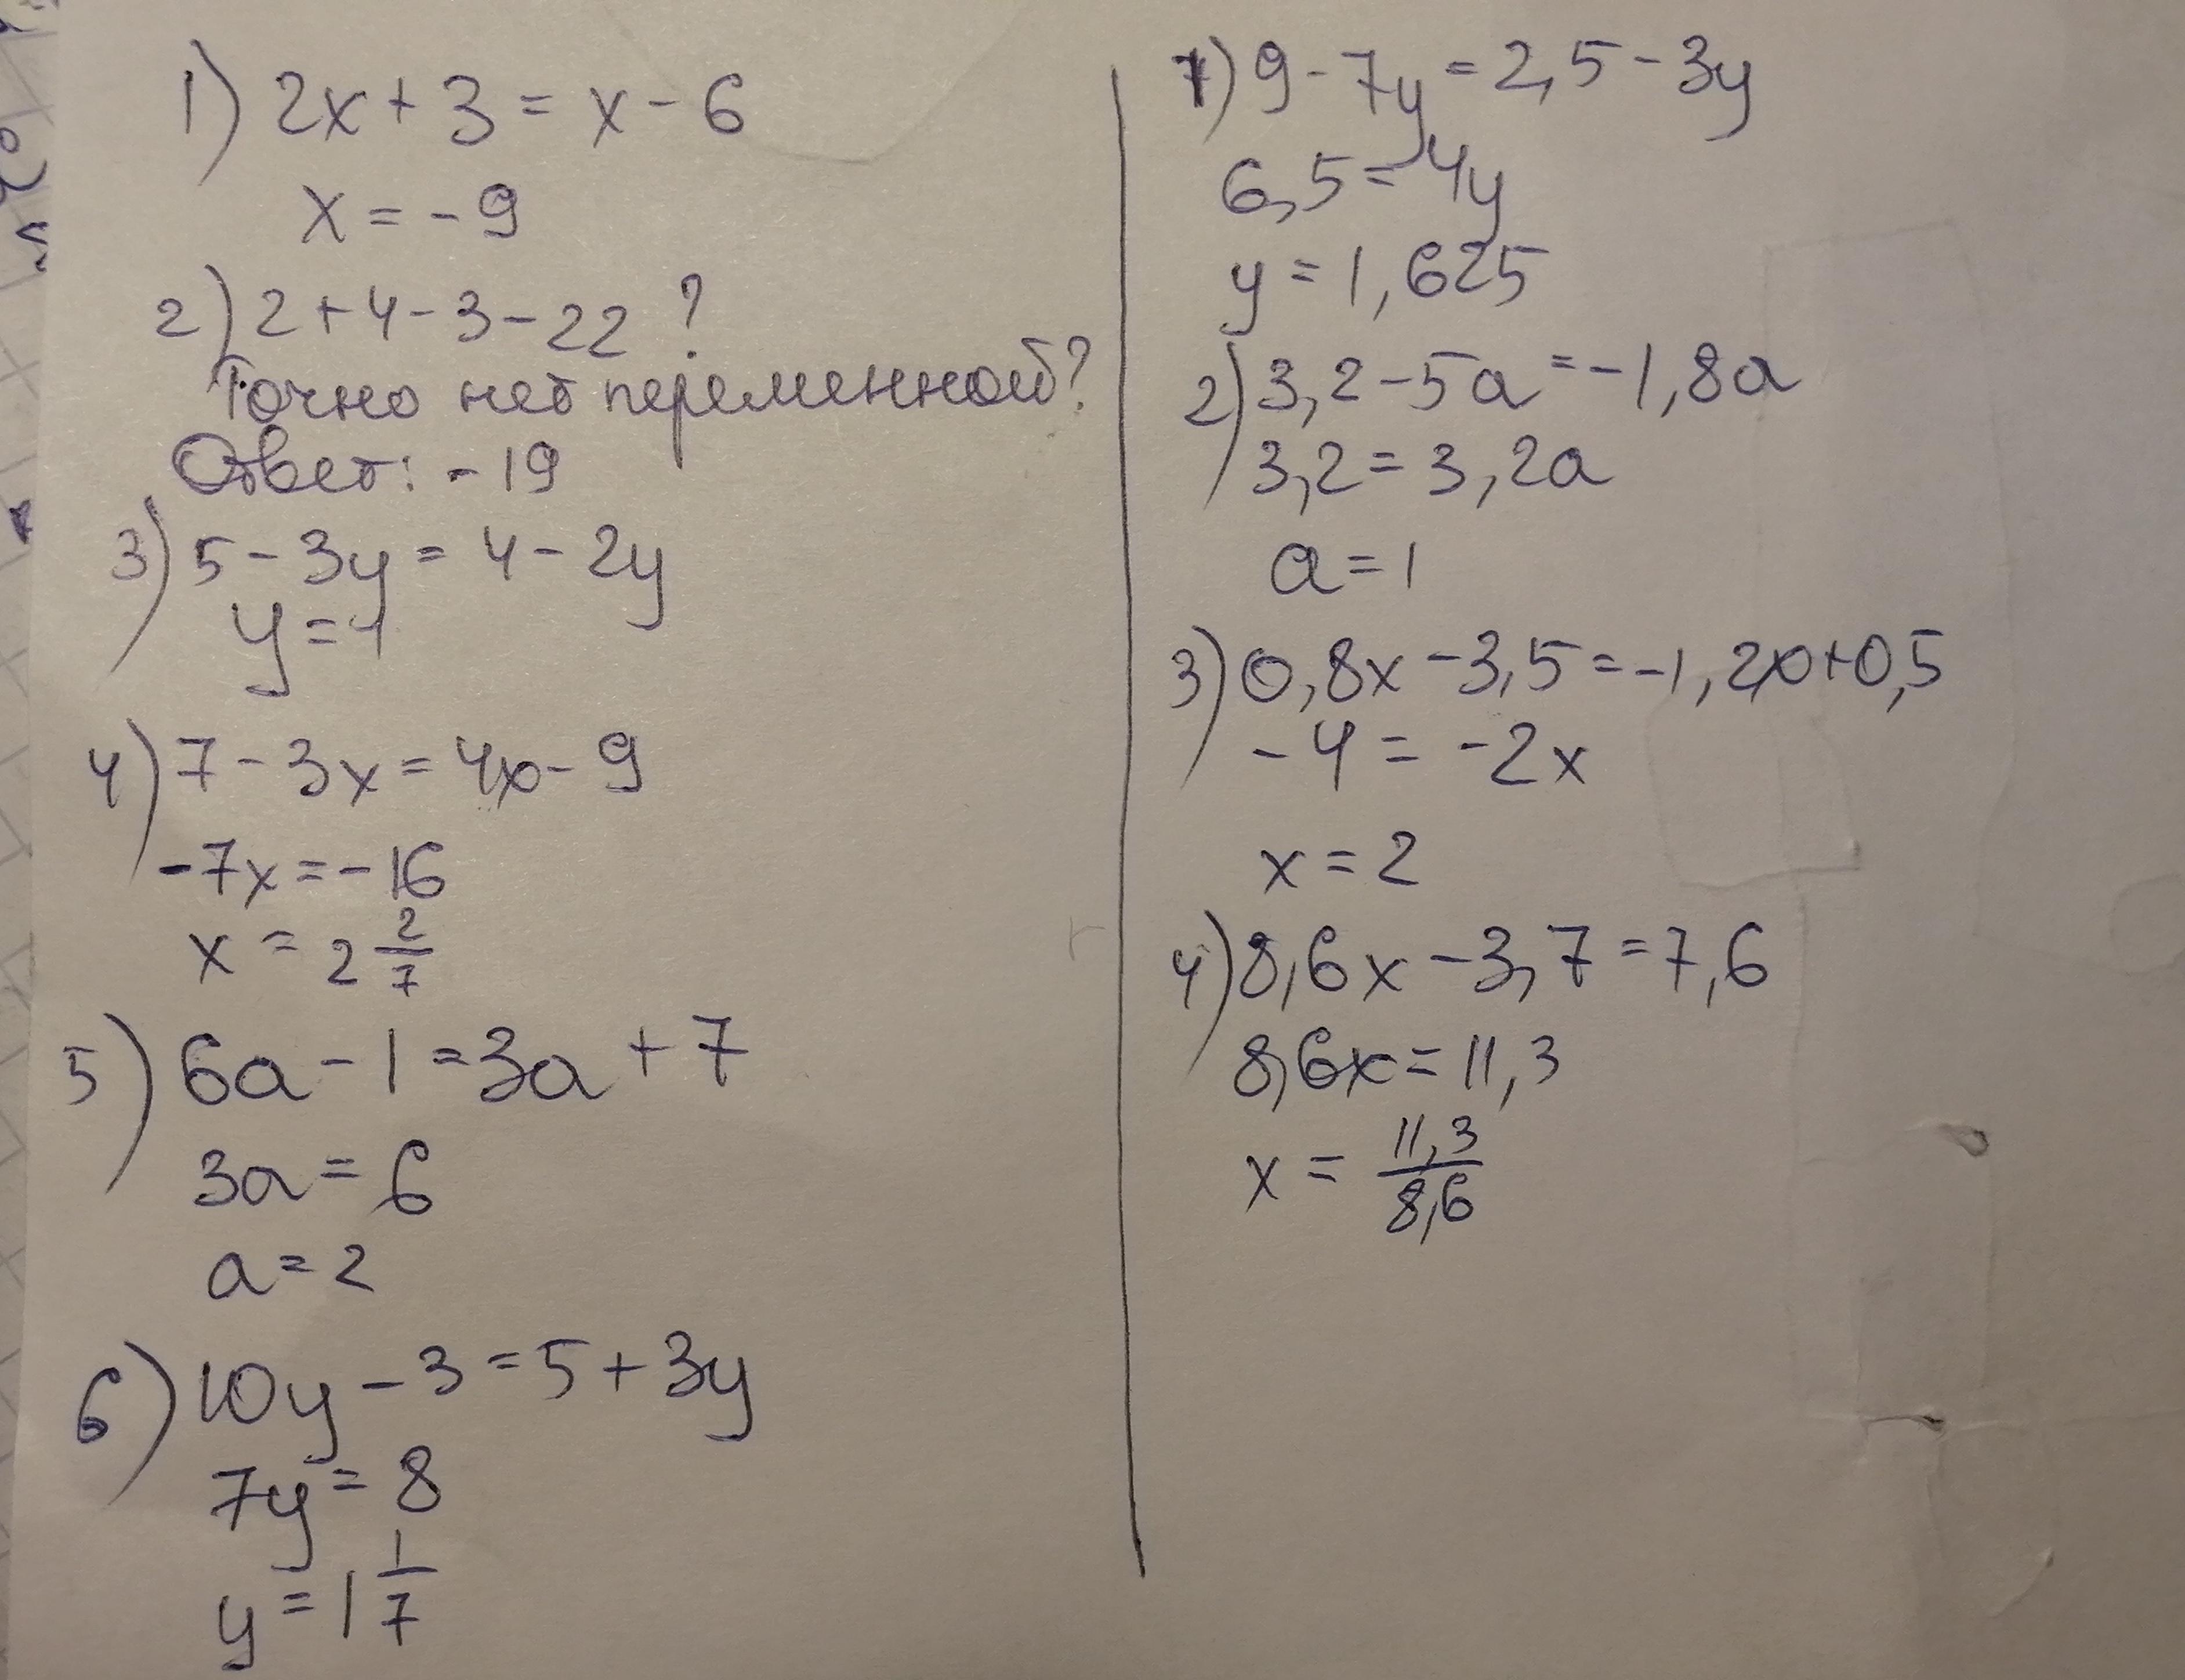 1) 2x + 3 = x - 6
x = - 9
2) 2 + 4 - 3 - 22 ?
Точно нет переменной?
Ответ: - 19
3) 5 - 3y = 4 - 2y
y = 1
4) 7 - 3x = 4x - 9
-7x = - 16
x = 2 2/7
5) 6a - 1 = 3a + 7
3a = 6
a = 2
6) 10y - 3 = 5 + 3y
7y = 8
y = 1 1/7
1) 9 - 7y = 2,5 - 3y
6,5 = 4y
y = 1,625
2) 3,2 - 5a = -1,8a
3,2 = 3,2a
a = 1
3) 0,8x - 3,5 = -1,2x + 0,5
-4 = -2x
x = 2
4) 8,6x - 3,7 = 7,6
8,6x = 11,3
x = 11,3/8,6